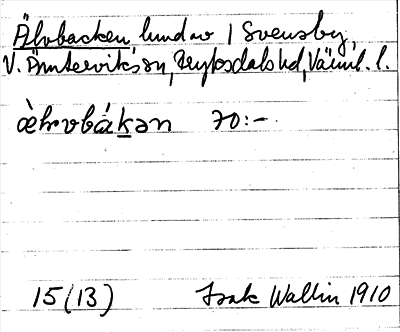 Älvbacken, lund av 1 Svensby,
V. Ämterviks sn, Fryksdals hd, Värml. l.
æ̀lvbákən 70:-
15(13) Isak Wallin 1910